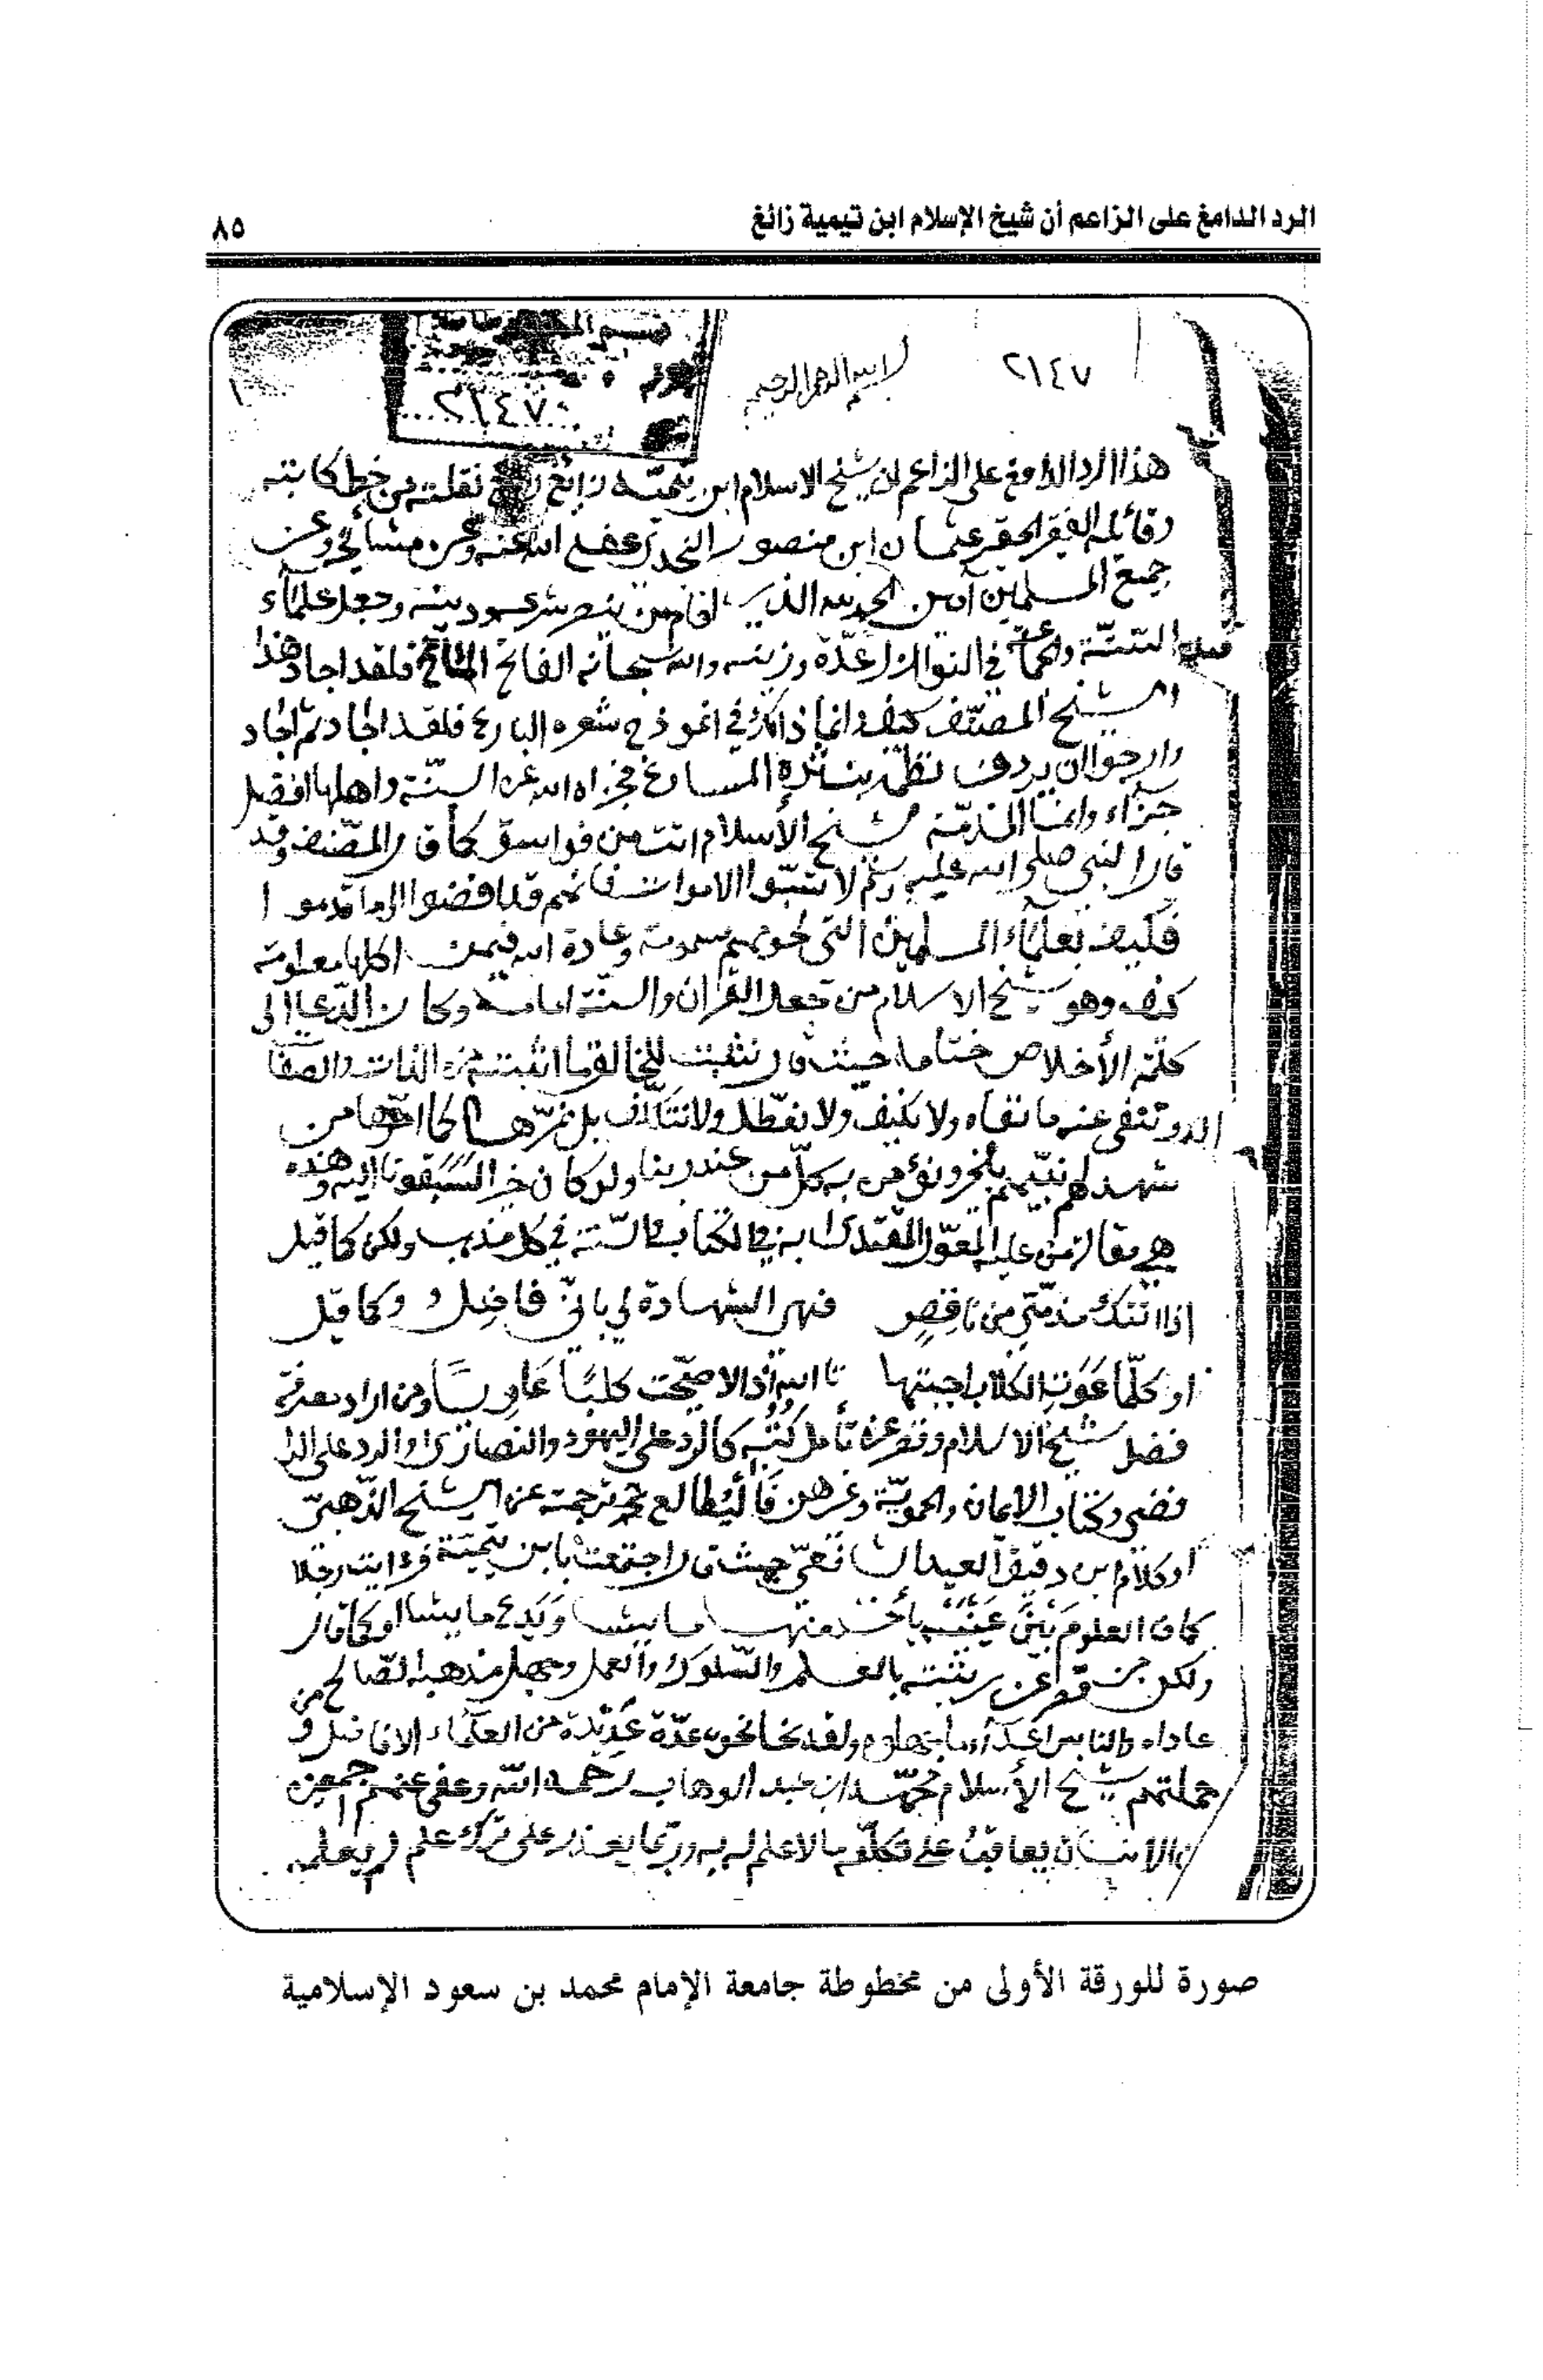 الرد الدامغ على الزاعم أن شيخ الإسلام ابن تيمية زائغ
٨٥
٢١٤٧
٢١٤٧
بسم الله الرحمن الرحيم
هذا الرد الدامغ على الزاعم ان شيخ الاسلام ابن تيميّة زائغ نقلته من خط كاتبه
وقائله الفقير الحقير عثمان ابن منصور النجدي عفى الله عنه وعن مشائخه وعن
جميع المسلمين آمين الحمد لله الذي اقام من ينصر شرعه ودينه وجعل علماء
السنّة في النوازل عدّة وزينه والله سبحانه الفاتح المانح فلقد اجاد هذا
الشيخ المصنّف في انموذج شعره البارع فلقد اجاد ثم اجاد
وارجوا ان يردف نظمه بنثره السارغ فجزاه الله عن السنّة واهلها افضل
جزاء وامّا الذمّة شيخ الأسلام انت من فواسق كما قال المصنف وقد
قال النبي صلى الله عليه وسلم لا تسبّوا الاموات فانهم قد افضوا الى ما قدموا
فكيف بعلماء المسلمين التي لحومهم مسمومة وعادة الله فيمن اكلها معلومة
كيف وهو شيخ الاسلام من جعل القرآن والسنّة امامه وكان الدّعا الى
كلمة الأخلاص ختامه حيث قال نثبت للخالق ما اثبته من الذات والصفا
وننفي عنه ما نفاه ولا نكيف ولا نعطّل ولا بل نمرّها كما امرّها من
شهد لهم نبيّهم بالخير ونؤمن به كلّ من عند ربنا ولو كان خيرا لسبقونا اليه وهذه
هي مقال من عليه المعوّل المقتدى به في الكتاب والسّنة في كل مذهب ولكن كما قيل
اذا اتتك مذمّتي من ناقصٍ فهي الشهادة لي بانّي فاضل وكما قيل
او كلّما عَوَتِ الكلاب اجبتها تا الله اذا لاصبحت كلبًا عاويسًا ومن اراد معرفة
فضل شيخ الاسلام تأمل كُتُبه كالرد على اليهود والنصارى والرد على الرا
فضي وكتاب الايمان والحمويّة وغرهن فَالْيُطالع ترجمته عن الشيخ الذّهبيّ
او كلام ابن دقيق العيد الشافعيّ حيث قال اجتمعت بابن تيميّة فرايت رجلا
كان العلوم بَيْنَ عَيْنَيْه يأخذ منها ما يشا وَيَدَع ما يشا او كما قال
ولكن من بالعلم والسّلوك والعمل وجهل مذهبه الصّالح من
عاداه والناس اعداء ما جهلوه ولقد نحا نحوه عدّة عديدة من العلماء الافاضل و
جملتهم شيخ الأسلام محمّد ابن عبد الوهاب رحمه الله وعفى عنهم اجمعين
والانسان يعاقبُ على تكلّمه بما لا علم له به وربّما يعذر على ترك علم لم يعلمه
صورة للورقة الأولى من مخطوطة جامعة الإمام محمد بن سعود الإسلامية